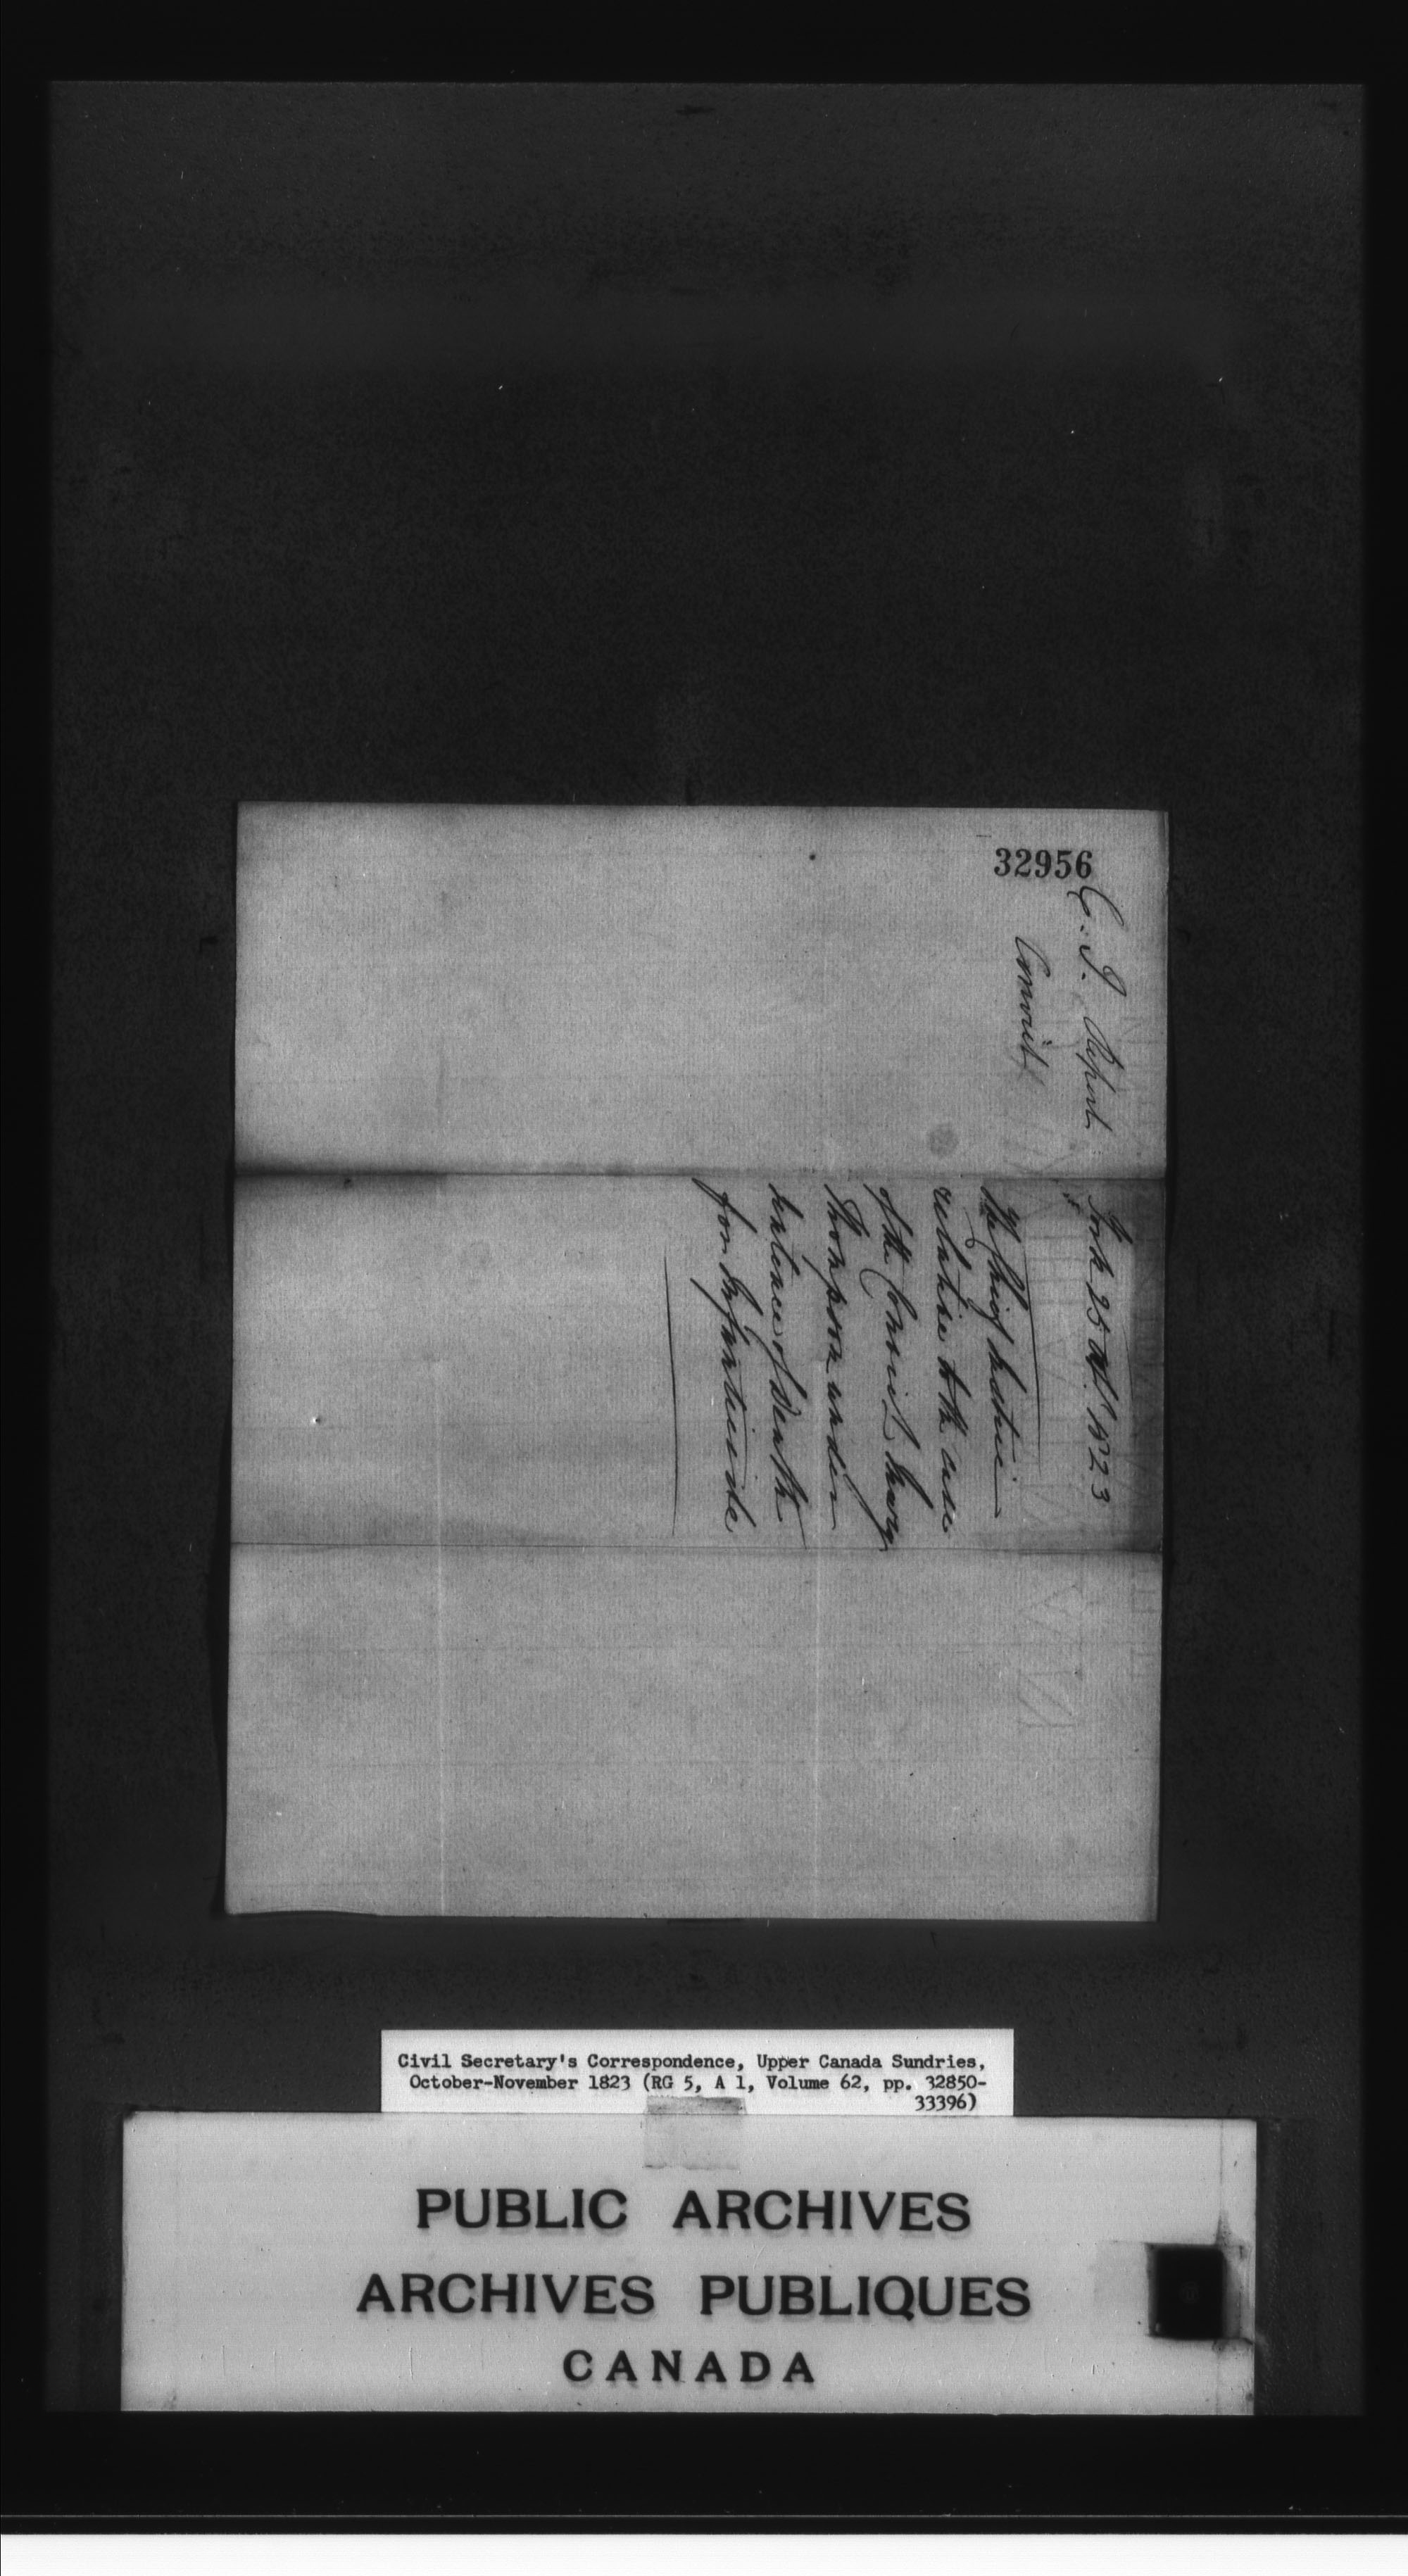 32956
C. J. Report
Convict
York 25 Oct. 1823
The Chief Justice
relative to the case
of the Convict Mary
Thompson under
Sentence of Death
for Infanticide
Civil Secretary's Correspondence, Upper Canada Sundries,
October-November 1823 (RG 5, A 1, Volume 62, pp. 32850-
33396)
PUBLIC ARCHIVES
ARCHIVES PUBLIQUES
CANADA